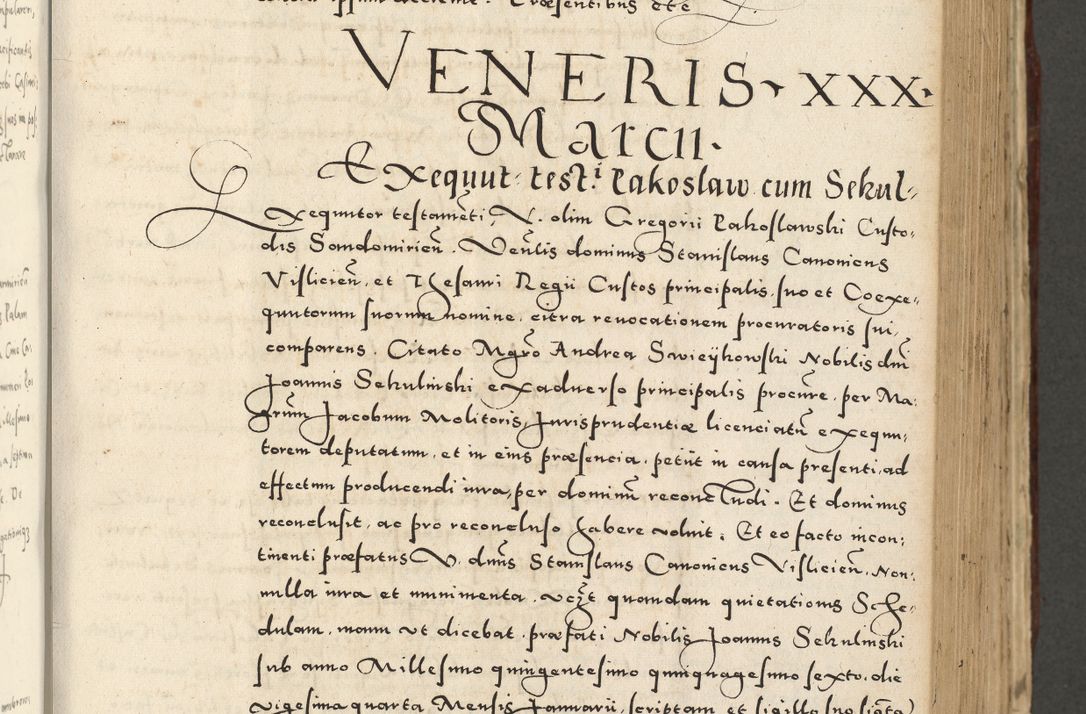 Præsentibus etc
VENERIS XXX
Marcii.
Exequut: test.i Pakoslaw cum Sekul-
Exequutor testamēti, V. olim Gregorii Pakoslawski Custo-
dis Sandomirień. Venlis dominus Stanislaus Canonicus
Vislicień. et Thesauri Regii Custos principalis, suo et Coexe-
quutorum suorum nomine, citra revocationem procuratoris sui,
comparens. Citato Mgro Andrea Swieijkowski Nobilis dni
Joannis Sekulinski ex adverso principalis procure. per Ma-
grum Jacobum Molitoris, Jurisprudentiæ licenciatū exequu-
torem deputatum, et in eius præsencia, petiit in causa presenti, ad
effectum producendi iura, per dominū reconcludi. Et dominus
reconclusit, ac pro reconcluso habere voluit. Et eo facto incon-
tinenti præfatus V. dnus Stanislaus Canonicus Vislicień. Non-
nulla iura et munimenta. vczt quandam quietationis Sche-
dulam, manu ut dicebat, præfati Nobilis Joannis Sekulinski
sub anno Millesimo quingentesimo quinquagesimo sexto, die
vigesima quarta Mensis Januarii, scriptam et sigillo suo